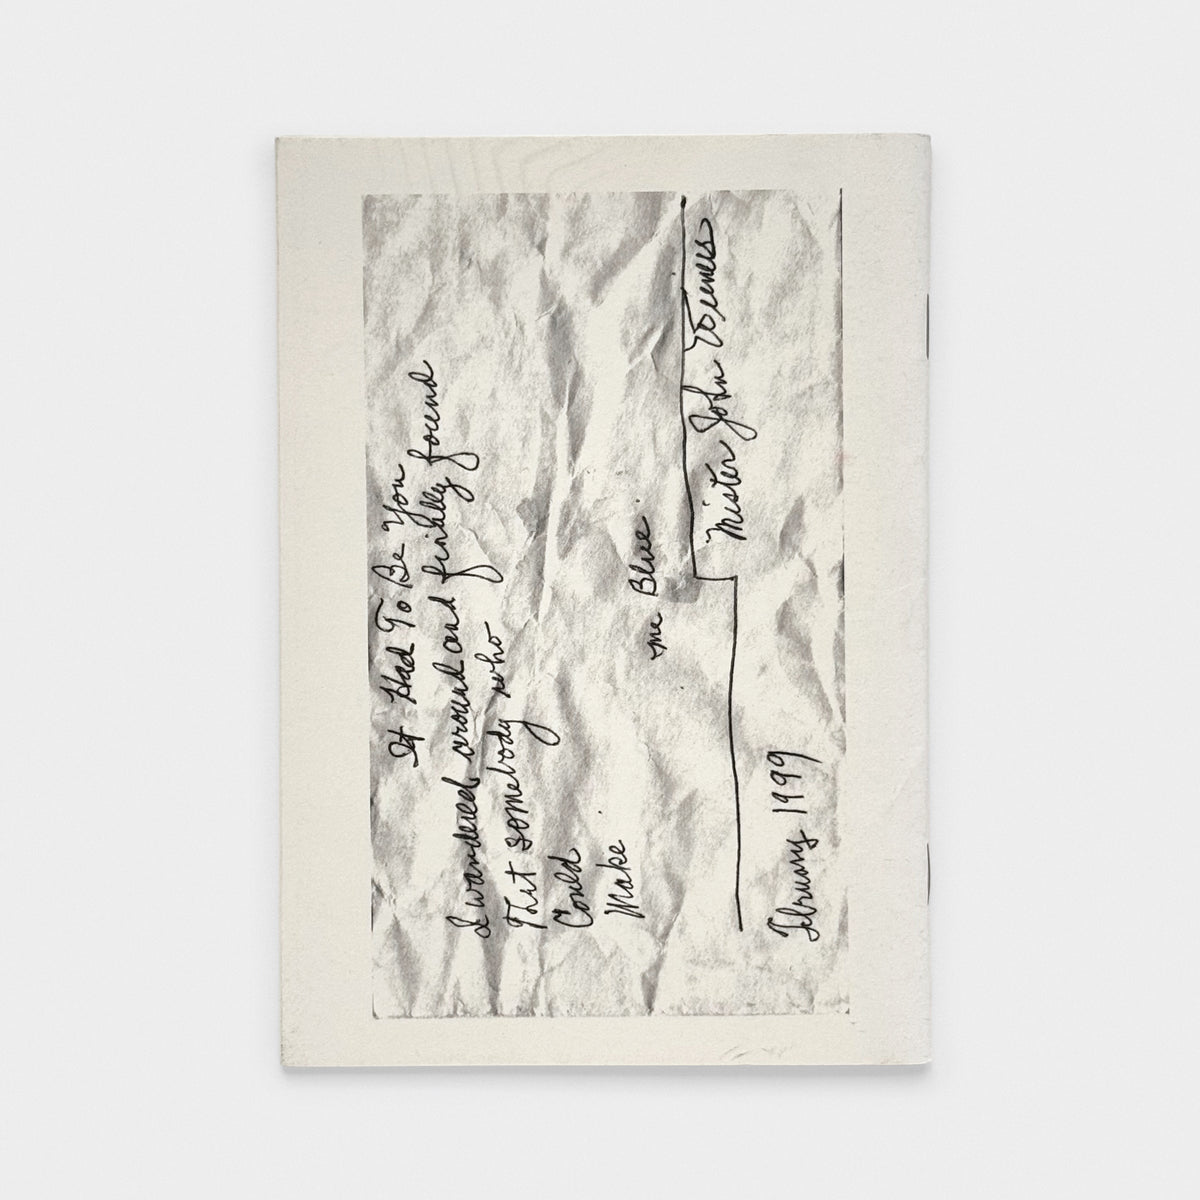 It Had To Be You
I wandered around and finally found
That somebody who
Could
Make
me Blue.
Mister John Wieners
February 1999